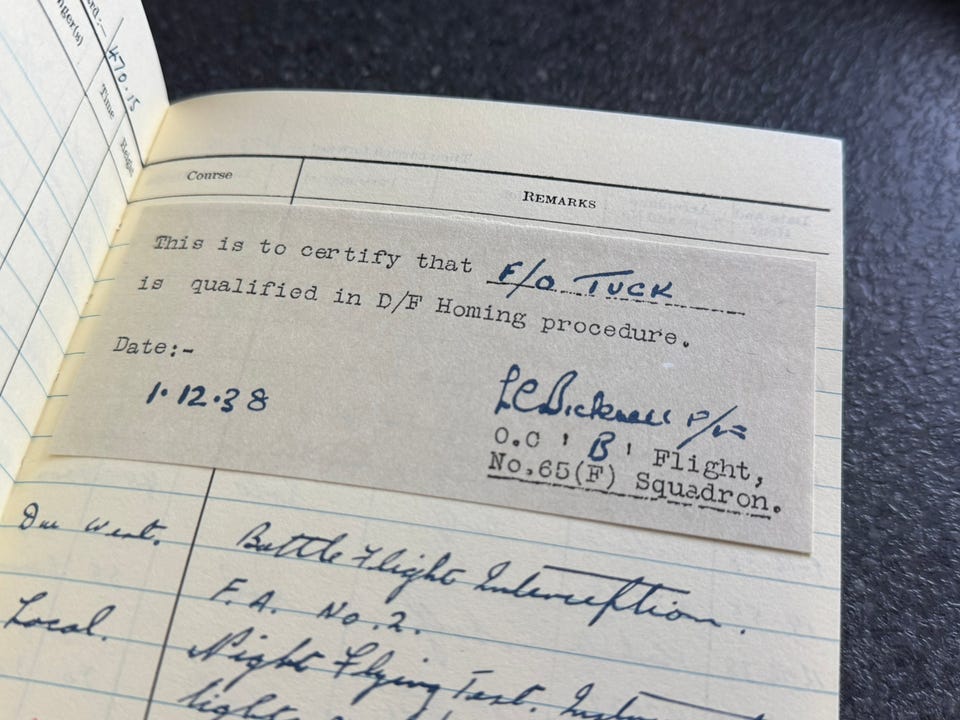 470.15
Time
Height
Course
REMARKS
This is to certify that F/O TUCK
is qualified in D/F Homing procedure.
Date:-
1.12.38
LC Bicknell F/Lt
O.C ' B ' Flight,
No.65(F) Squadron.
Due West.
Battle Flight Interception.
F.A. No.2.
Local.
Night Flying Test.
light